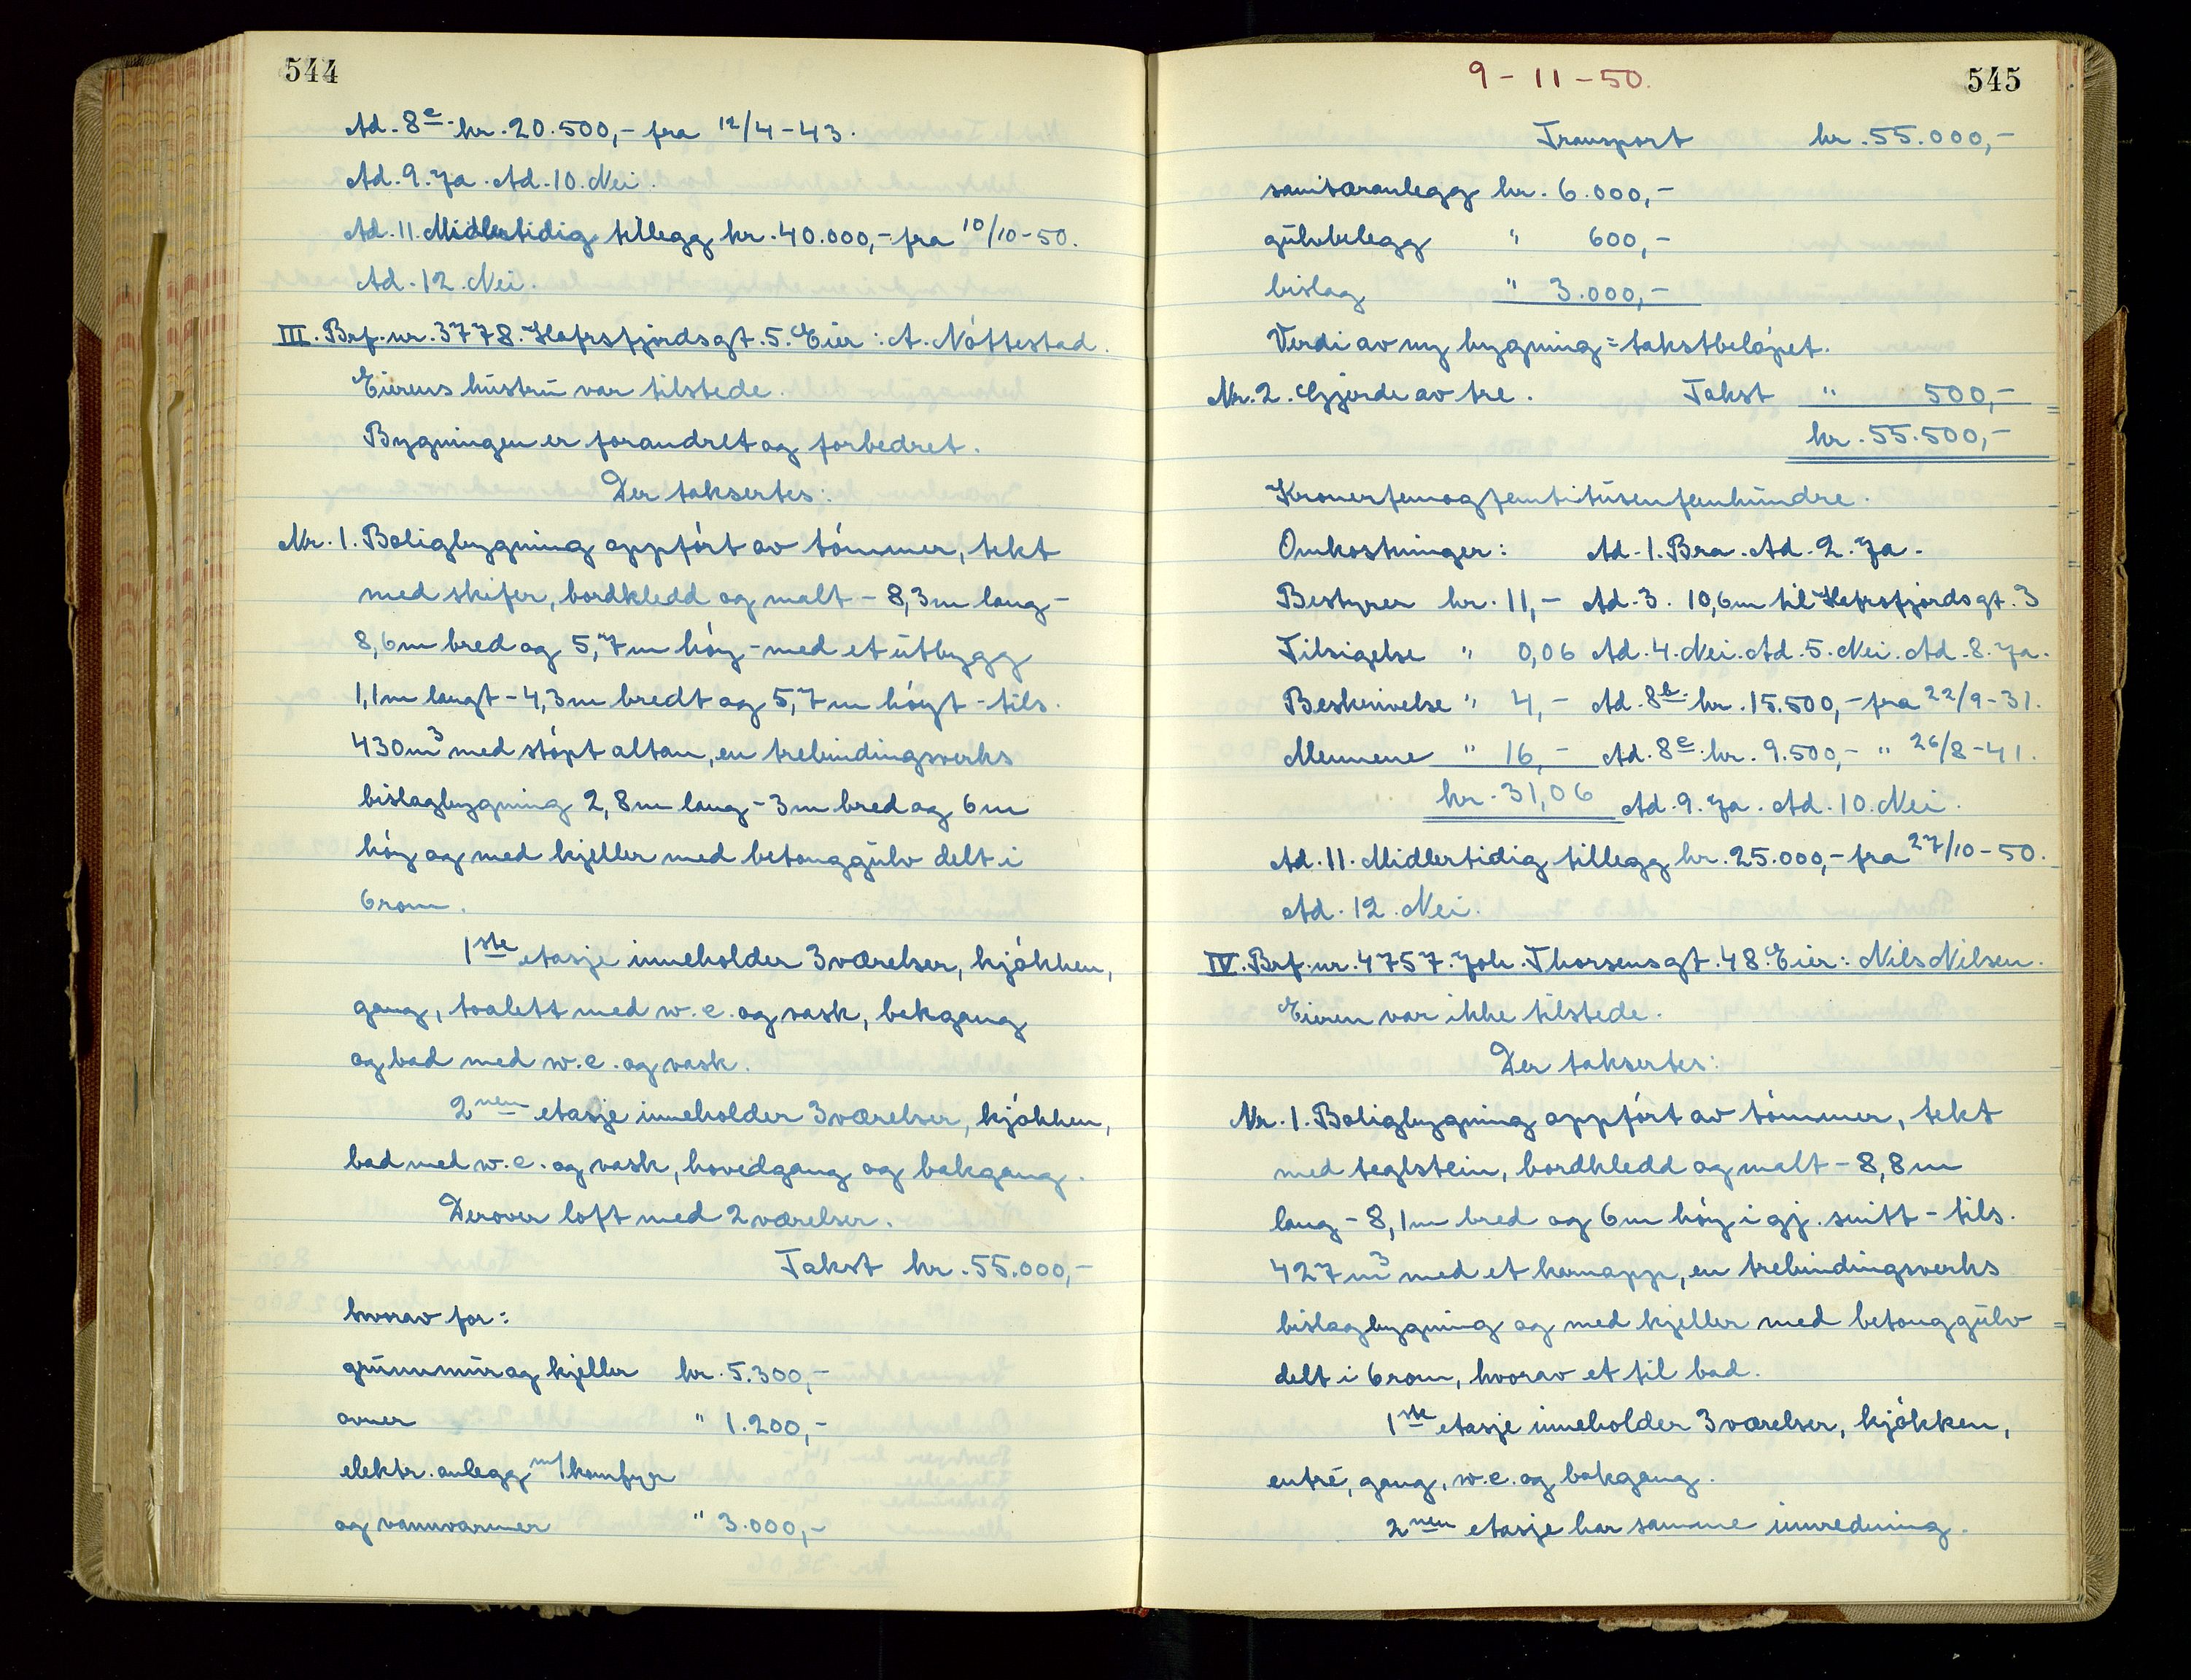 544
Ad. 8c. kr. 20.500,- fra 12/4-43.
Ad. 9. Ja. Ad. 10. Nei.
Ad. 11. Midlertidig tillegg kr. 40.000,- fra 10/10-50.
Ad. 12. Nei.
III. Brf. nr. 3778. Hafrsfjordsgt. 5. Eier: A. Nóttestad.
Eierens hustru var tilstede.
Bygningen er forandret og forbedret.
Der taksertes:
Nr. 1. Boligbygning oppfórt av tómmer, tekt
med skifer, bordkledd og malt - 8,3m lang -
8,6m bred og 5,7m hóy - med et utbygg
1,1m langt - 4,3m bredt og 5,7m hóyt - tils.
430m³ med stópt altan, en trebindingsverks
bislagbygning 2,8m lang - 3m bred og 6m
hóy og med kjeller med betonggulv delt i
6 rom.
1ste etasje inneholder 3 værelser, kjókken,
gang, toalett med w.c. og vask, bakgang
og bad med w.c. og vask.
2nen etasje inneholder 3 værelser, kjókken,
bad med w.c. og vask, hovedgang og bakgang.
Derover loft med 2 værelser.
Takst kr. 55.000,-
hvorav for:
grunnmur og kjeller kr. 5.300,-
ovner " 1.200,-
elektr. anlegg m/komfyr
og vannvarmer " 3.000,-
9-11-50.
545
Transport kr. 55.000,-
sanitæranlegg kr. 6.000,-
gulvbelegg " 600,-
bislag " 3.000,-
Verdi av ny bygning = takstbelópet.
Nr. 2. Gjerde av tre. Takst " 500,-
kr. 55.500,-
Kronerfemogfemtitusenfemhundre.
Omkostninger: Ad. 1. Bra. Ad. 2. Ja.
Bestyrer kr. 11,- Ad. 3. 10,6m til Hafrsfjordsgt. 3
Tilsigelse " 0,06 Ad. 4. Nei. Ad. 5. Nei. Ad. 8. Ja.
Beskrivelse " 4,- Ad. 8b. kr. 15.500,- fra 22/9-31.
Mennene " 16,- Ad. 8c. kr. 9.500,- " 26/8-41.
kr. 31,06 Ad. 9. Ja. Ad. 10. Nei.
Ad. 11. Midlertidig tillegg kr. 25.000,- fra 27/10-50.
Ad. 12. Nei.
IV. Brf. nr. 4757. Joh. Thorsensgt. 48. Eier: Nils Nilsen.
Eieren var ikke tilstede.
Der taksertes:
Nr. 1. Boligbygning oppfórt av tómmer, tekt
med teglstein, bordkledd og malt - 8,8m
lang - 8,1m bred og 6m hóy i gj. snitt - tils.
427m³ med et karnapp, en trebindingsverks
bislagbygning og med kjeller med betonggulv
delt i 6 rom, hvorav et til bad.
1ste etasje inneholder 3 værelser, kjókken,
entré, gang, w.c. og bakgang.
2nen etasje har samme innredning.